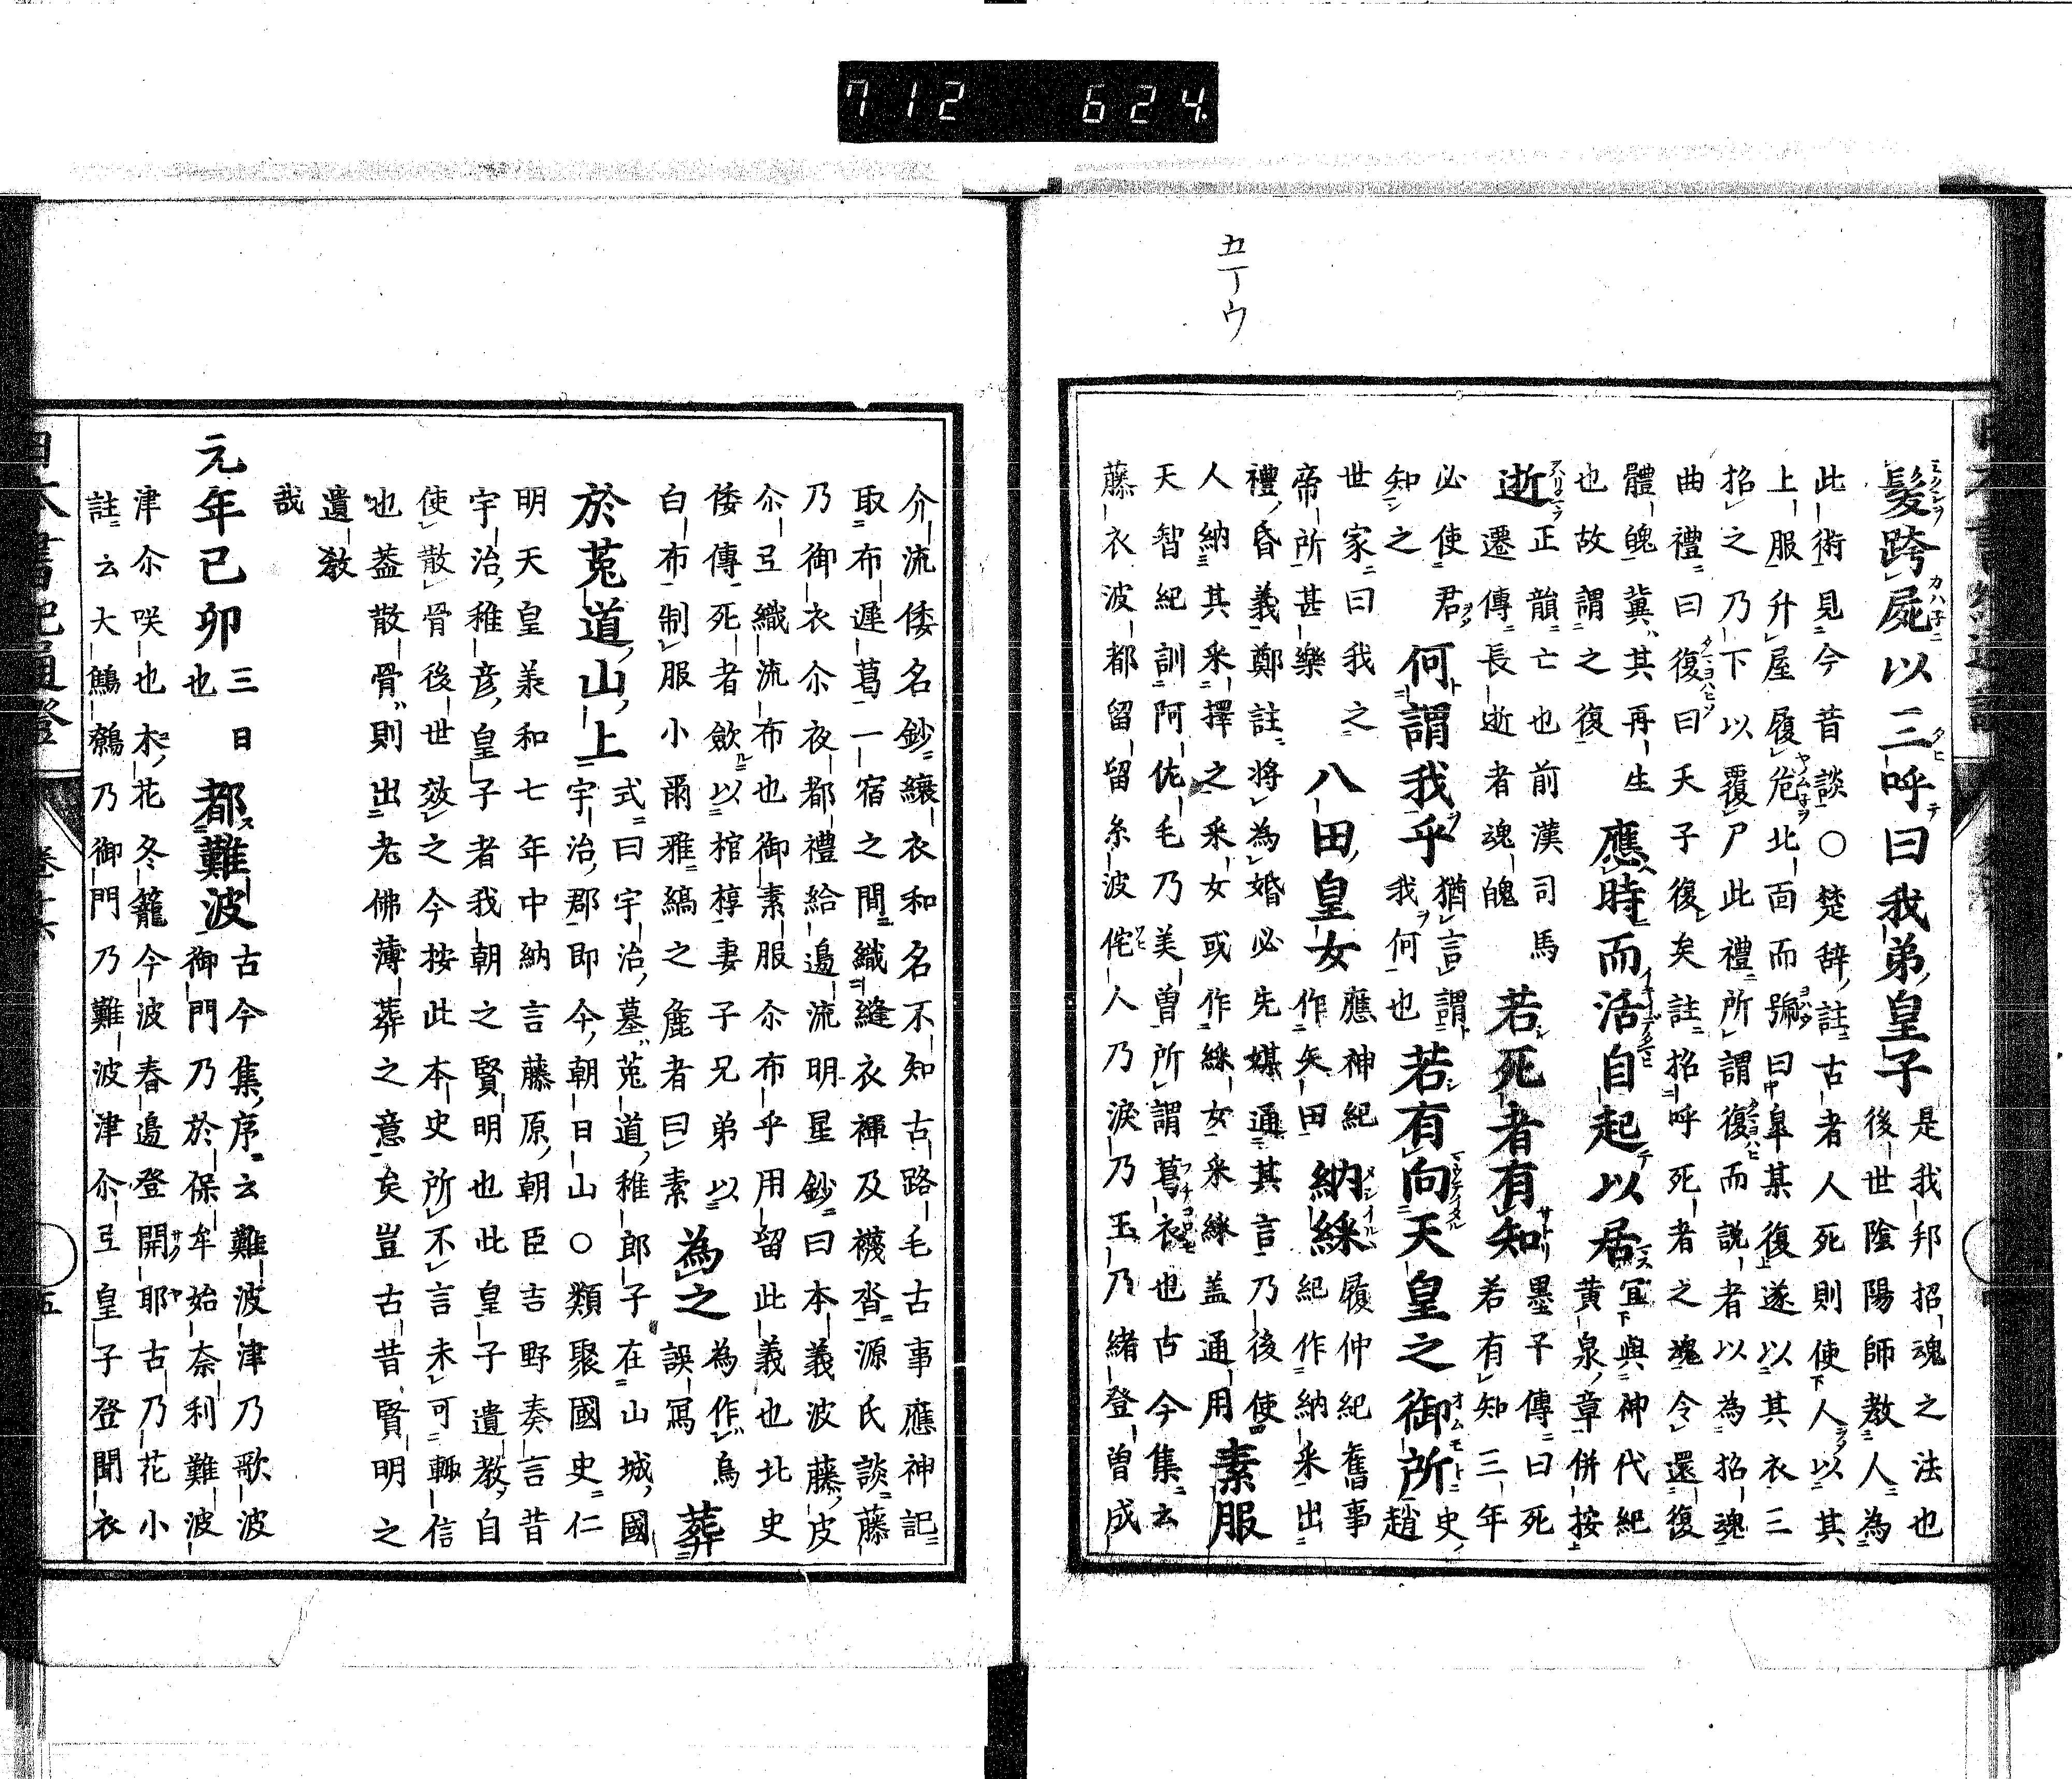 712 624.
五丁ウ
髮跨屍以三呼曰我弟皇子是我邦招魂之法也
後世陰陽師教人為
此術見今昔談○楚辞註古者人死則使人以其
上服升屋履危北面而號曰皐某復遂以其衣三
招之乃下以覆尸此禮所謂復而說者以為招魂
曲禮曰復曰天子復矣註招呼死者之魂令還復
體魄冀其再生
也故謂之復
應時而活自起以居宜與神代紀
黄泉章併按
逝正韻亡也前漢司馬
遷傳長逝者魂魄
若死者有知墨子傳曰死
若有知三年
必使君
知之
何謂我乎猶言謂
我何也
若有向天皇之御所史趙
世家曰我之
帝所甚樂
八田皇女應神紀
作矢田
納綵履仲紀舊事
紀作納采出
禮昏義鄭註將為婚必先媒通其言乃後使
人納其采擇之采女或作綵女采綵蓋通用
素服
天智紀訓阿佐毛乃美曽所謂葛衣也古今集云
藤衣波都留留糸波侘人乃淚乃玉乃緒登曽成
介流倭名鈔縗衣和名不知古路毛古事應神記
取布遲葛一宿之間織縫衣褌及襪沓源氏談藤
乃御衣尒夜都禮給邉流明星鈔曰本義波藤皮
尒弖織流布也御素服尒布乎用留此義也北史
倭傳死者歛以棺椁妻子兄弟以
白布制服小爾雅縞之麁者曰素
為之為作烏
誤寫
葬
於菟道山上式曰宇治墓菟道稚郎子在山城國
宇治郡即今朝日山○類聚國史仁
明天皇美和七年中納言藤原朝臣吉野奏言昔
宇治稚彦皇子者我朝之賢明也此皇子遺教自
使散骨後世效之今按此本史所不言未可輙信
也葢散骨則出老佛薄葬之意矣豈古昔賢明之
遺教
哉
元年己卯三日
也
都難波古今集序云難波津乃歌波
御門乃於保牟始奈利難波
津尒咲也木花冬籠今波春邉登開耶古乃花小
註云大鷦鷯乃御門乃難波津尒弖皇子登聞衣